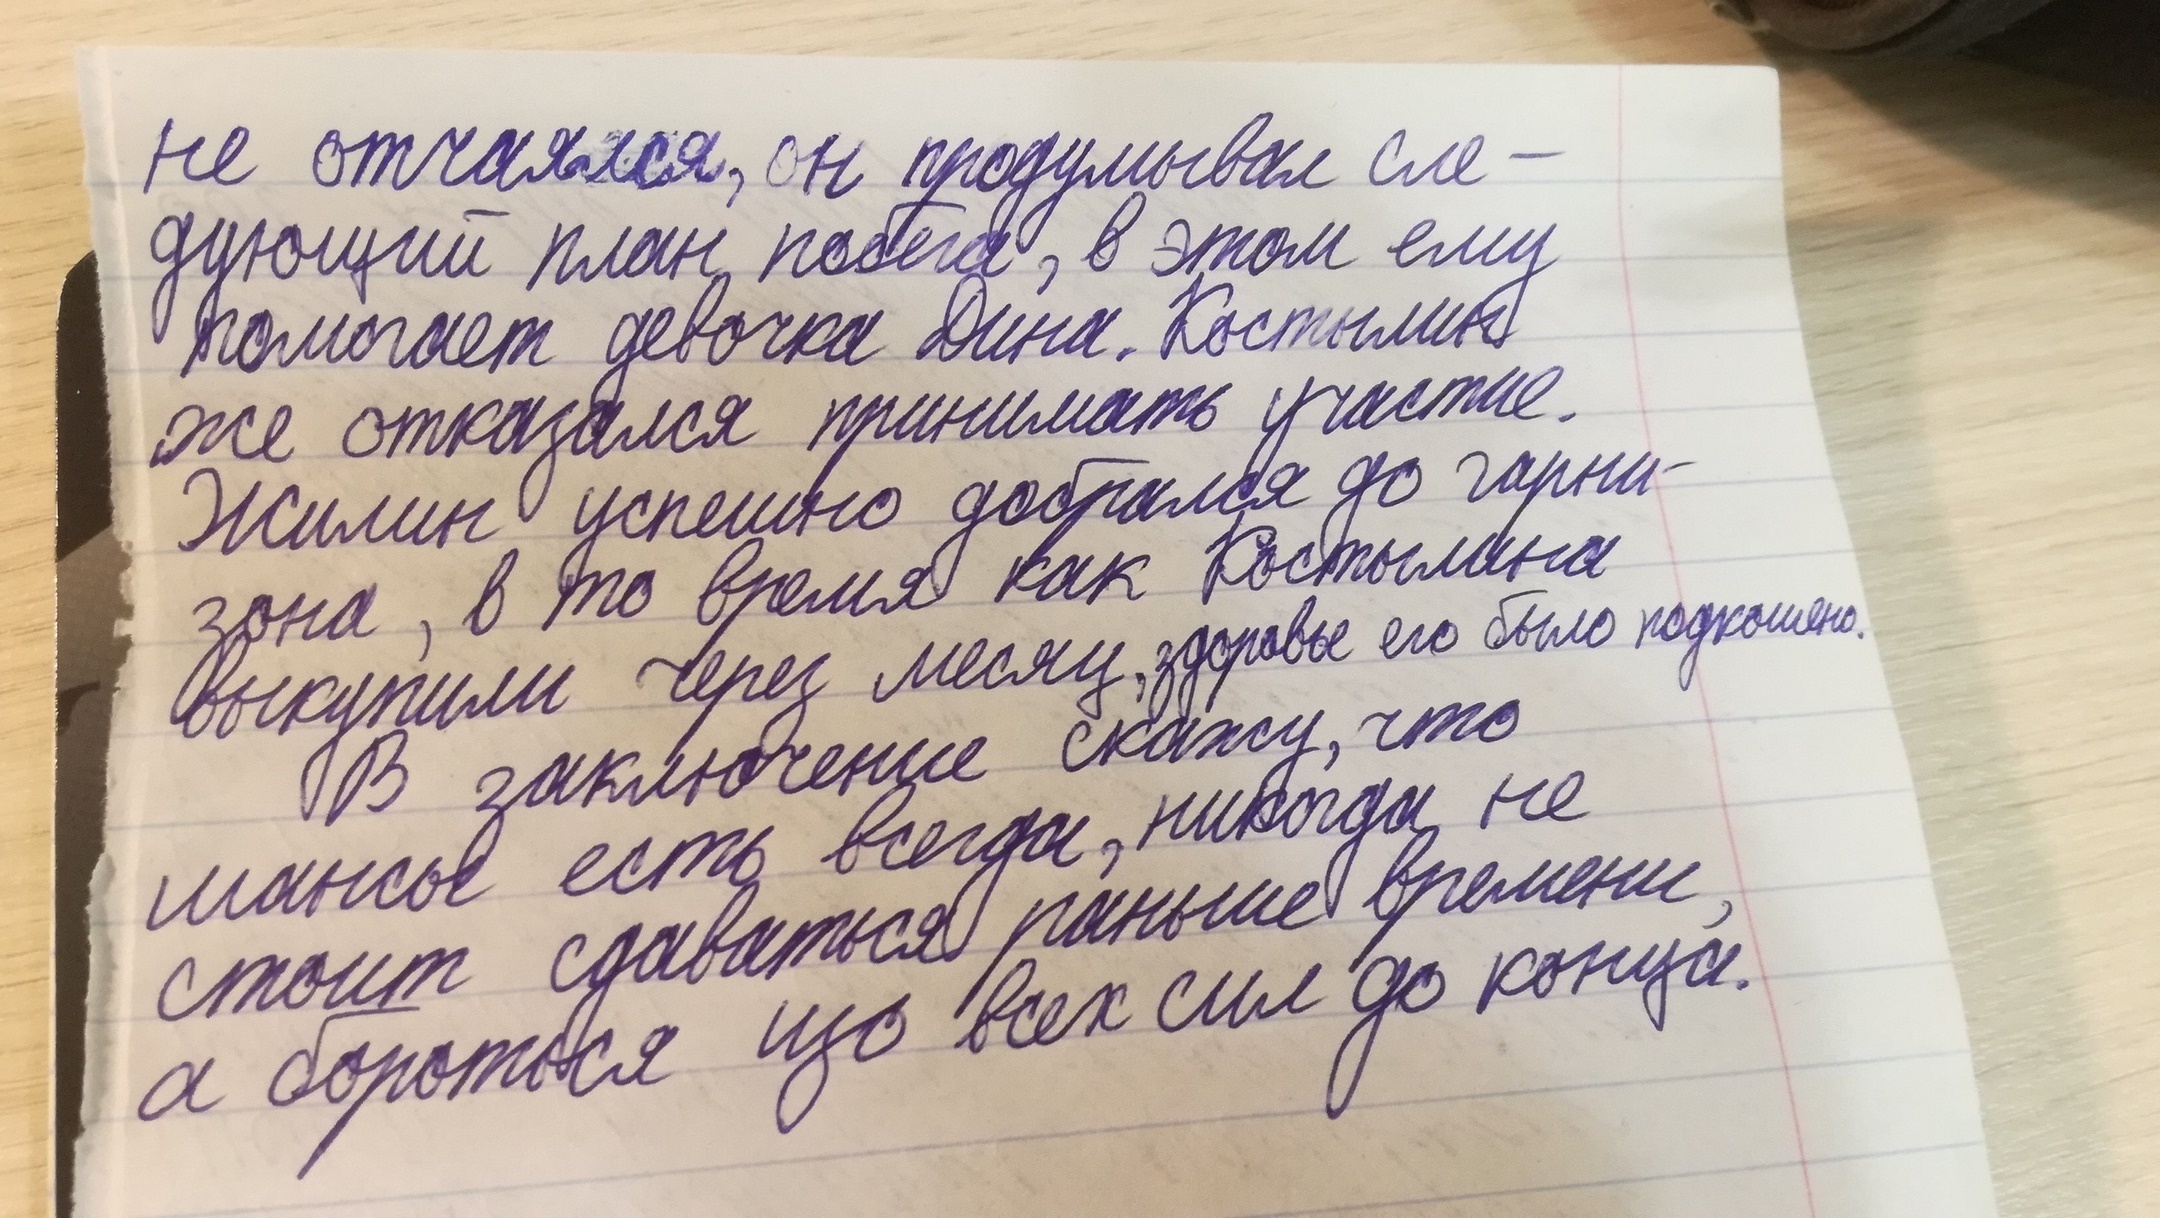 не отчаялся, он продумывал сле-
дующий план побега, в этом ему
помогает девочка Дина. Костылин
же отказался принимать участие.
Жилин успешно добрался до гарни-
зона, в то время как Костылина
выкупили через месяц, здоровье его было подкошено.
В заключение скажу, что
шансы есть всегда, никогда не
стоит сдаваться раньше времени,
а бороться изо всех сил до конца.